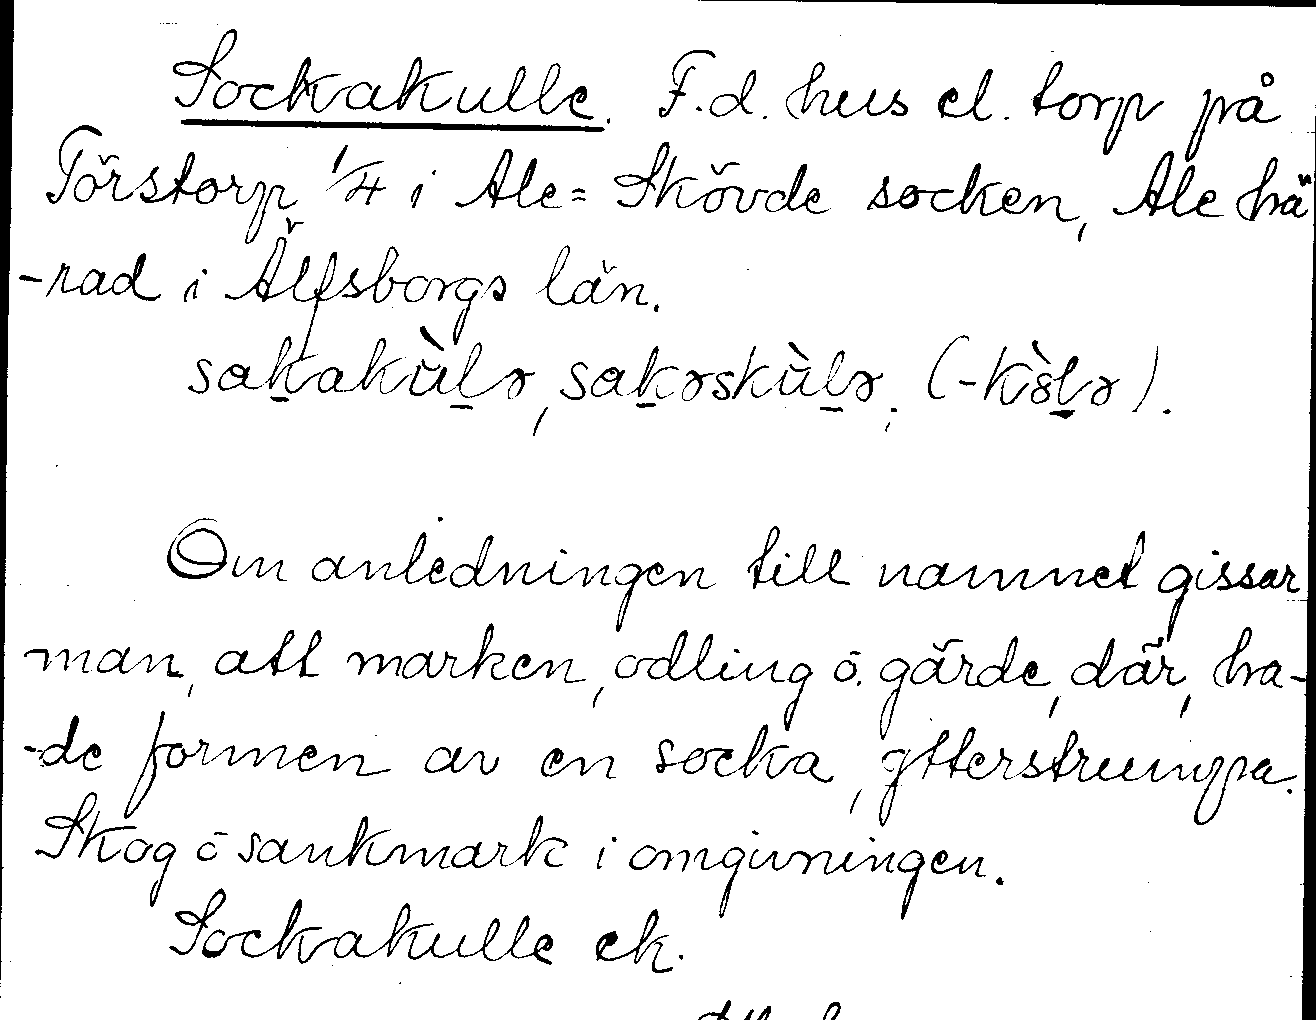 Sockakulle. F.d. hus el. torp på
Törstorp 1/4 i Ale= Skövde socken, Ale hä
-rad i Älfsborgs län.
sakakùlə, sakəskùlə. (-kòlə).
Om anledningen till namnet gissar
man, att marken, odling o. gärde, där, ha-
-de formen av en socka, ytterstrumpa.
Skog o sankmark i omgivningen.
Sockakulle ek.